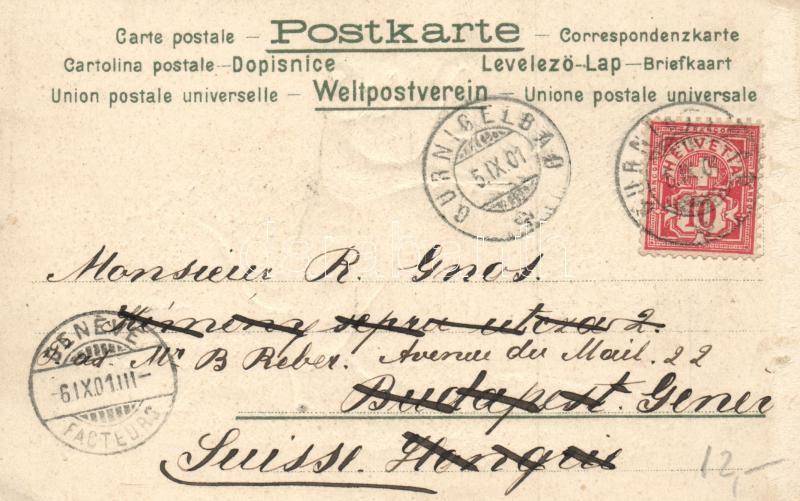 Carte postale – Postkarte – Correspondenzkarte
Cartolina postale – Dopisnice Levelezö-Lap – Briefkaart
Union postale universelle – Weltpostverein – Unione postale universale
GURNIGELBAD
5.IX.01
FRANCO
HELVETIA
10
Monsieur R. Gnos.
utcza 2.
ad. Mr B Reber. Avenue du Mail. 22
Budapest. Genèv
Suisse. Hongrie
GENÈVE
6IX.01.III–
FACTEURS
12,–
darabanth